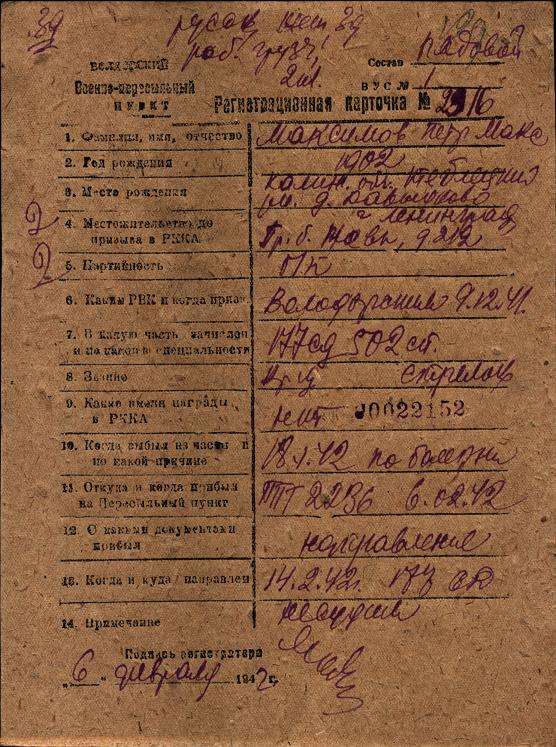 зд
русск, зд
раб. грузч.
2 кл.
Состав рядовой
ВУС № 1
ВОЛХОВСКИЙ
Военно-пересыльный
ПУНКТ
Регистрационная карточка № 2316
1. Фамилия, имя, отчество Максимов Петр Макс
2. Год рождения 1902
3. Место рождения Калин. обл.
р. д.
4. Местожительство до г Ленинград
призыва в РККА Пр. б. д 212
2
2
5. Партийность б/п
6. Каким РВК и когда призв. Володарским 9.12.41.
7. В какую часть зачислен
и по какой специальности 177 сд 502 сп.
8. Звание Кр-ц Стрелок
9. Какие имел награды
в РККА нет 00022152
10. Когда выбыл из части и
по какой причине 18.1.42 по болезни
11. Откуда и когда прибыл
на Пересыльный пункт 2236 6.02.42
12. С какими документами
прибыл направление
13. Когда и куда направлен 14.2.42г. СД
14. Примечание
Подпись регистратора
„6“ февраля 1942 г.